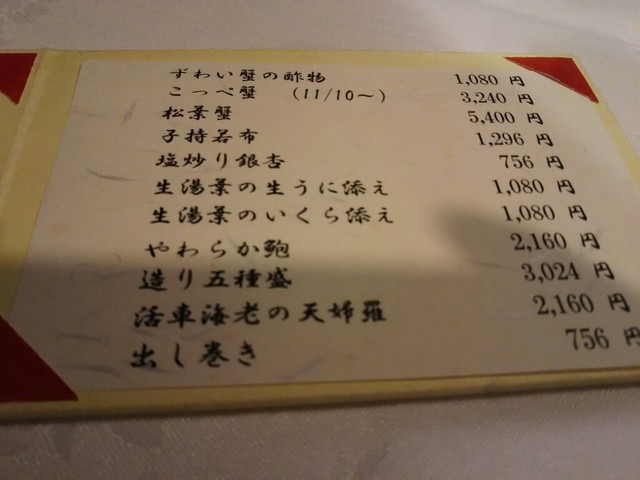 ずわい蟹の酢物 1,080 円
こっぺ蟹 (11/10～) 3,240 円
松葉蟹 5,400 円
子持若布 1,296 円
塩炒り銀杏 756 円
生湯葉の生うに添え 1,080 円
生湯葉のいくら添え 1,080 円
やわらか鮑 2,160 円
造り五種盛 3,024 円
活車海老の天婦羅 2,160 円
出し巻き 756 円